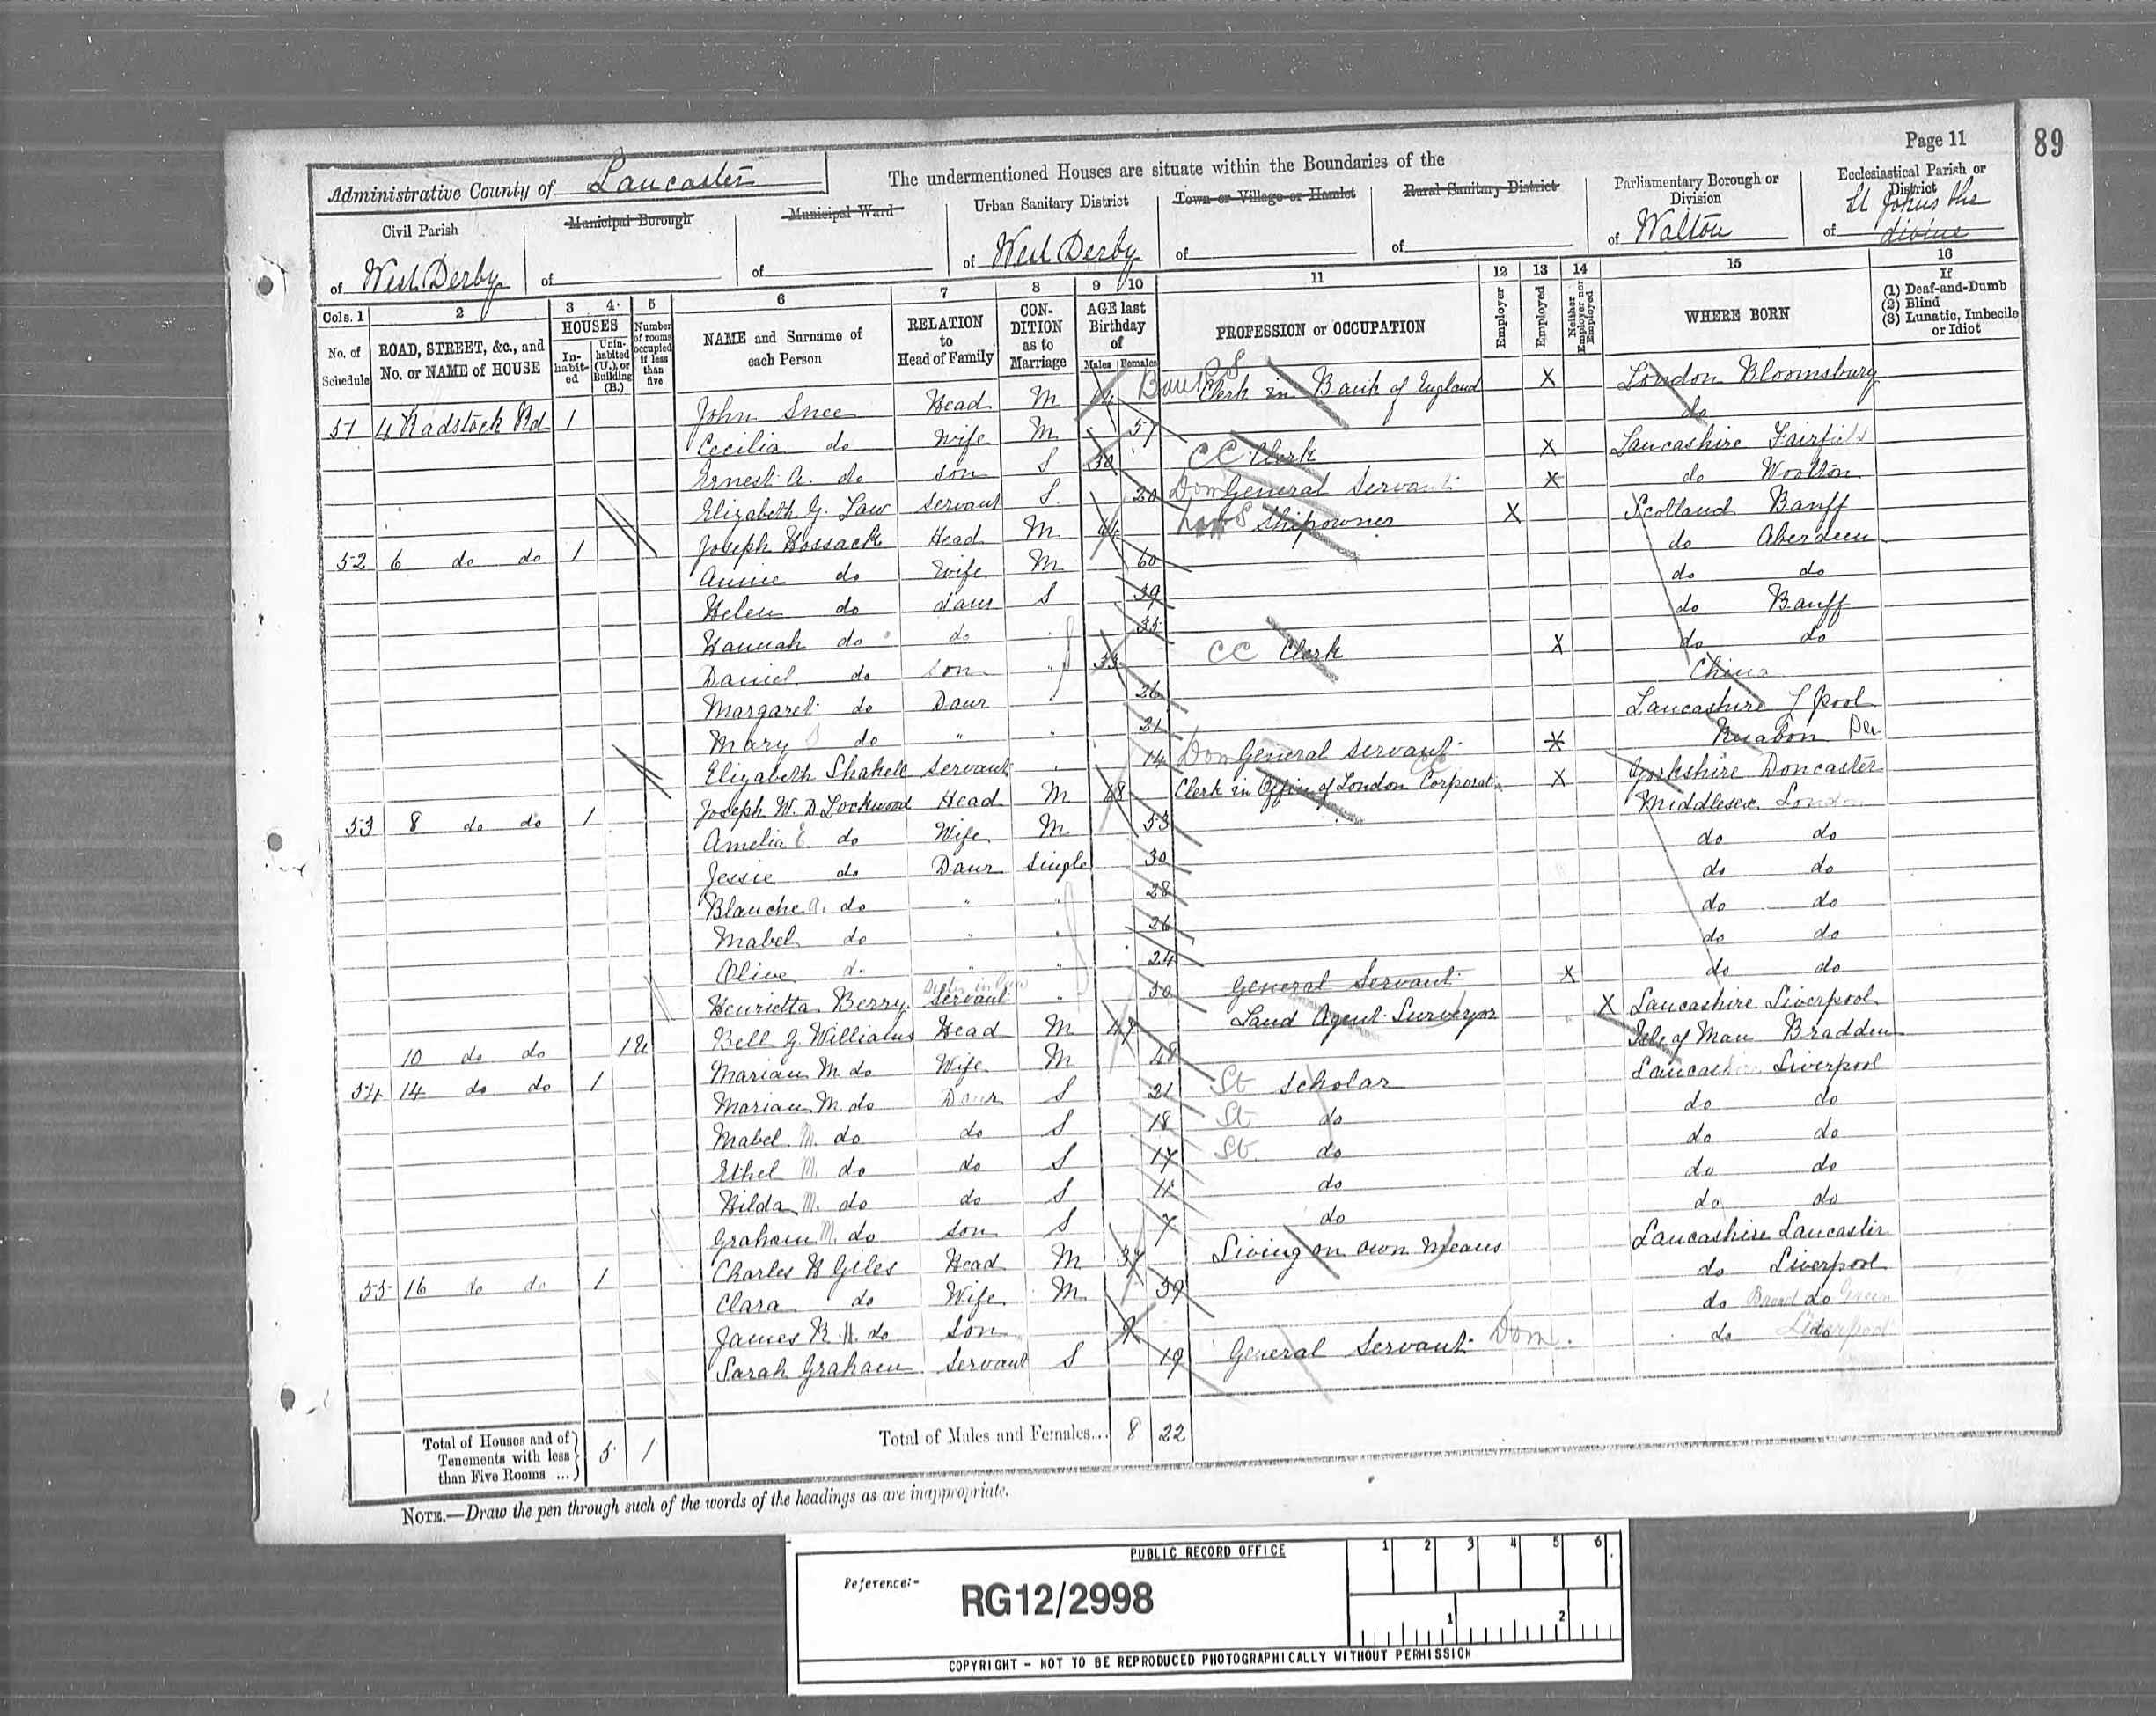 Page 11
89
Administrative County of Lancaster
The undermentioned Houses are situate within the Boundaries of the
Civil Parish
of West Derby
Municipal Borough
of
Municipal Ward
of
Urban Sanitary District
of West Derby
Town or Village or Hamlet
of
Rural Sanitary District
of
Parliamentary Borough or Division
of Walton
Ecclesiastical Parish or District
of St Johns the divine
Cols. 1 2 3 4 5 6 7 8 9 10 11 12 13 14 15 16
No. of Schedule
ROAD, STREET, &c., and No. or NAME of HOUSE
HOUSES
In-habit-ed
Unin-habited (U.), or Building (B.)
Number of rooms occupied if less than five
NAME and Surname of each Person
RELATION to Head of Family
CON-DITION as to Marriage
AGE last Birthday of
Males Females
PROFESSION or OCCUPATION
Employer
Employed
Neither Employer nor Employed
WHERE BORN
If
(1) Deaf-and-Dumb
(2) Blind
(3) Lunatic, Imbecile or Idiot
51 4 Radstock Rd 1 John Snee Head M Clerk in Bank of England X London Bloomsbury
Cecilia do Wife M 57 do
Ernest A. do son S 30 CC Clerk X Lancashire Fairfield
Elizabeth G. Law Servant S. 20 Dom General Servant X do Woolton
52 6 do do 1 Joseph Hossack Head M 64 Shipowner X Scotland Banff
Annie do Wife M 60 do Aberdeen
Helen do daur S 39 do do
Hannah do do 35 do Banff
Daniel do son " 33 CC Clerk X do do
Margaret do Daur 26 China
Mary S do " " 21 Lancashire L pool
Elizabeth Shakell Servant " 14 Dom General Servant X Ruabon Den
53 8 do do 1 Joseph W. D Lockwood Head M 68 Clerk in Office of London Corporation X Yorkshire Doncaster
Amelia E do Wife M 53 Middlesex London
Jessie do Daur Single 30 do do
Blanche A. do " " 28 do do
Mabel do " " 26 do do
Olive do " " 24 do do
Henrietta Berry Servant " 30 General Servant X do do
10 do do 1 U Bell G. Williams Head M 47 Land Agent Surveyor X Lancashire Liverpool
54 14 do do 1 Marian M. do Wife M 48 Isle of Man Braddon
Marian M. do Daur S 21 St Scholar Lancashire Liverpool
Mabel M. do do S 18 St do do do
Ethel M. do do S 17 St do do do
Hilda M. do do S 11 do do do
Graham M. do son S 7 do do do
55 16 do do 1 Charles H Giles Head M 37 Living on own Means Lancashire Lancaster
Clara do Wife M 39 do Liverpool
James R. H. do son 9 do Broad do Green
Sarah Graham Servant S 19 General Servant Dom. do do Liverpool
Total of Houses and of Tenements with less than Five Rooms ... 5 1
Total of Males and Females... 8 22
NOTE.—Draw the pen through such of the words of the headings as are inappropriate.
PUBLIC RECORD OFFICE
Reference:-
RG12/2998
1 2 3 4 5 6
1 2
COPYRIGHT - NOT TO BE REPRODUCED PHOTOGRAPHICALLY WITHOUT PERMISSION